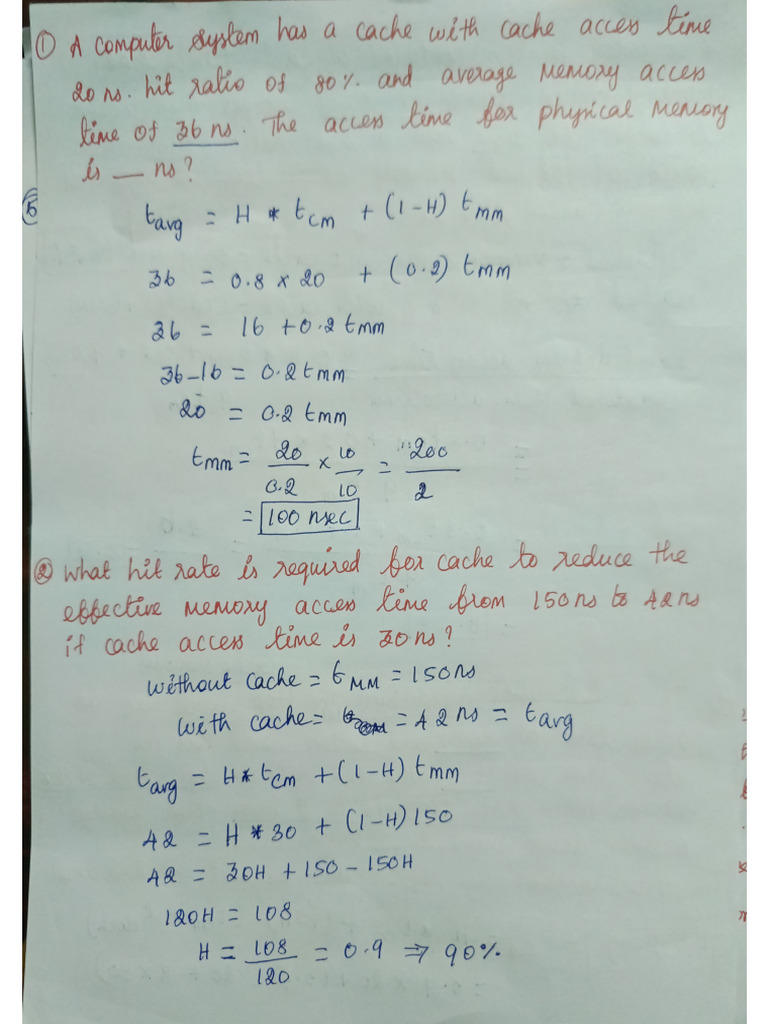 ① A computer system has a cache with cache access time
20 ns. hit ratio of 80% and average memory access
time of 36 ns. The access time for physical memory
is — ns?
t_avg = H * t_cm + (1-H) t_mm
36 = 0.8 × 20 + (0.2) t_mm
36 = 16 + 0.2 t_mm
36-16 = 0.2 t_mm
20 = 0.2 t_mm
t_mm = 20/0.2 × 10/10 = 200/2
= 100 nsec
② What hit rate is required for cache to reduce the
effective memory access time from 150ns to 42ns
if cache access time is 30ns?
without cache = t_MM = 150ns
with cache = = 42ns = t_avg
t_avg = H * t_cm + (1-H) t_mm
42 = H * 30 + (1-H) 150
42 = 30H + 150 - 150H
120H = 108
H = 108/120 = 0.9 ⇒ 90%